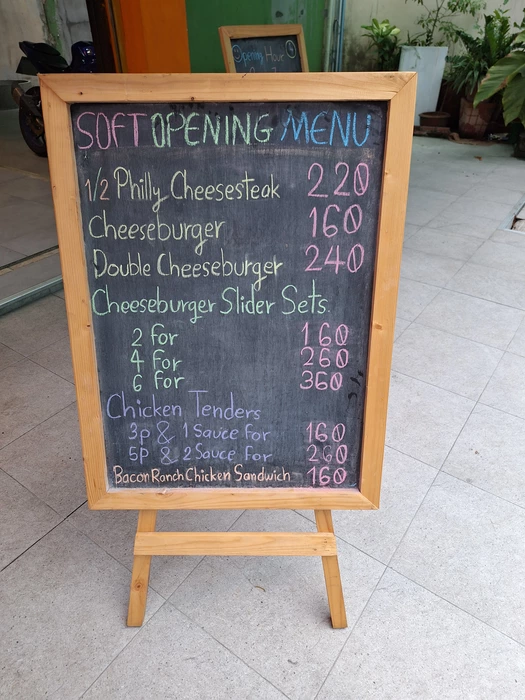 Opening Hour
SOFT OPENING MENU
1/2 Philly Cheesesteak 220
Cheeseburger 160
Double Cheeseburger 240
Cheeseburger Slider Sets.
2 for 160
4 for 260
6 for 360
Chicken Tenders
3p & 1 Sauce for 160
5P & 2 Sauce for 260
Bacon Ranch Chicken Sandwich 160